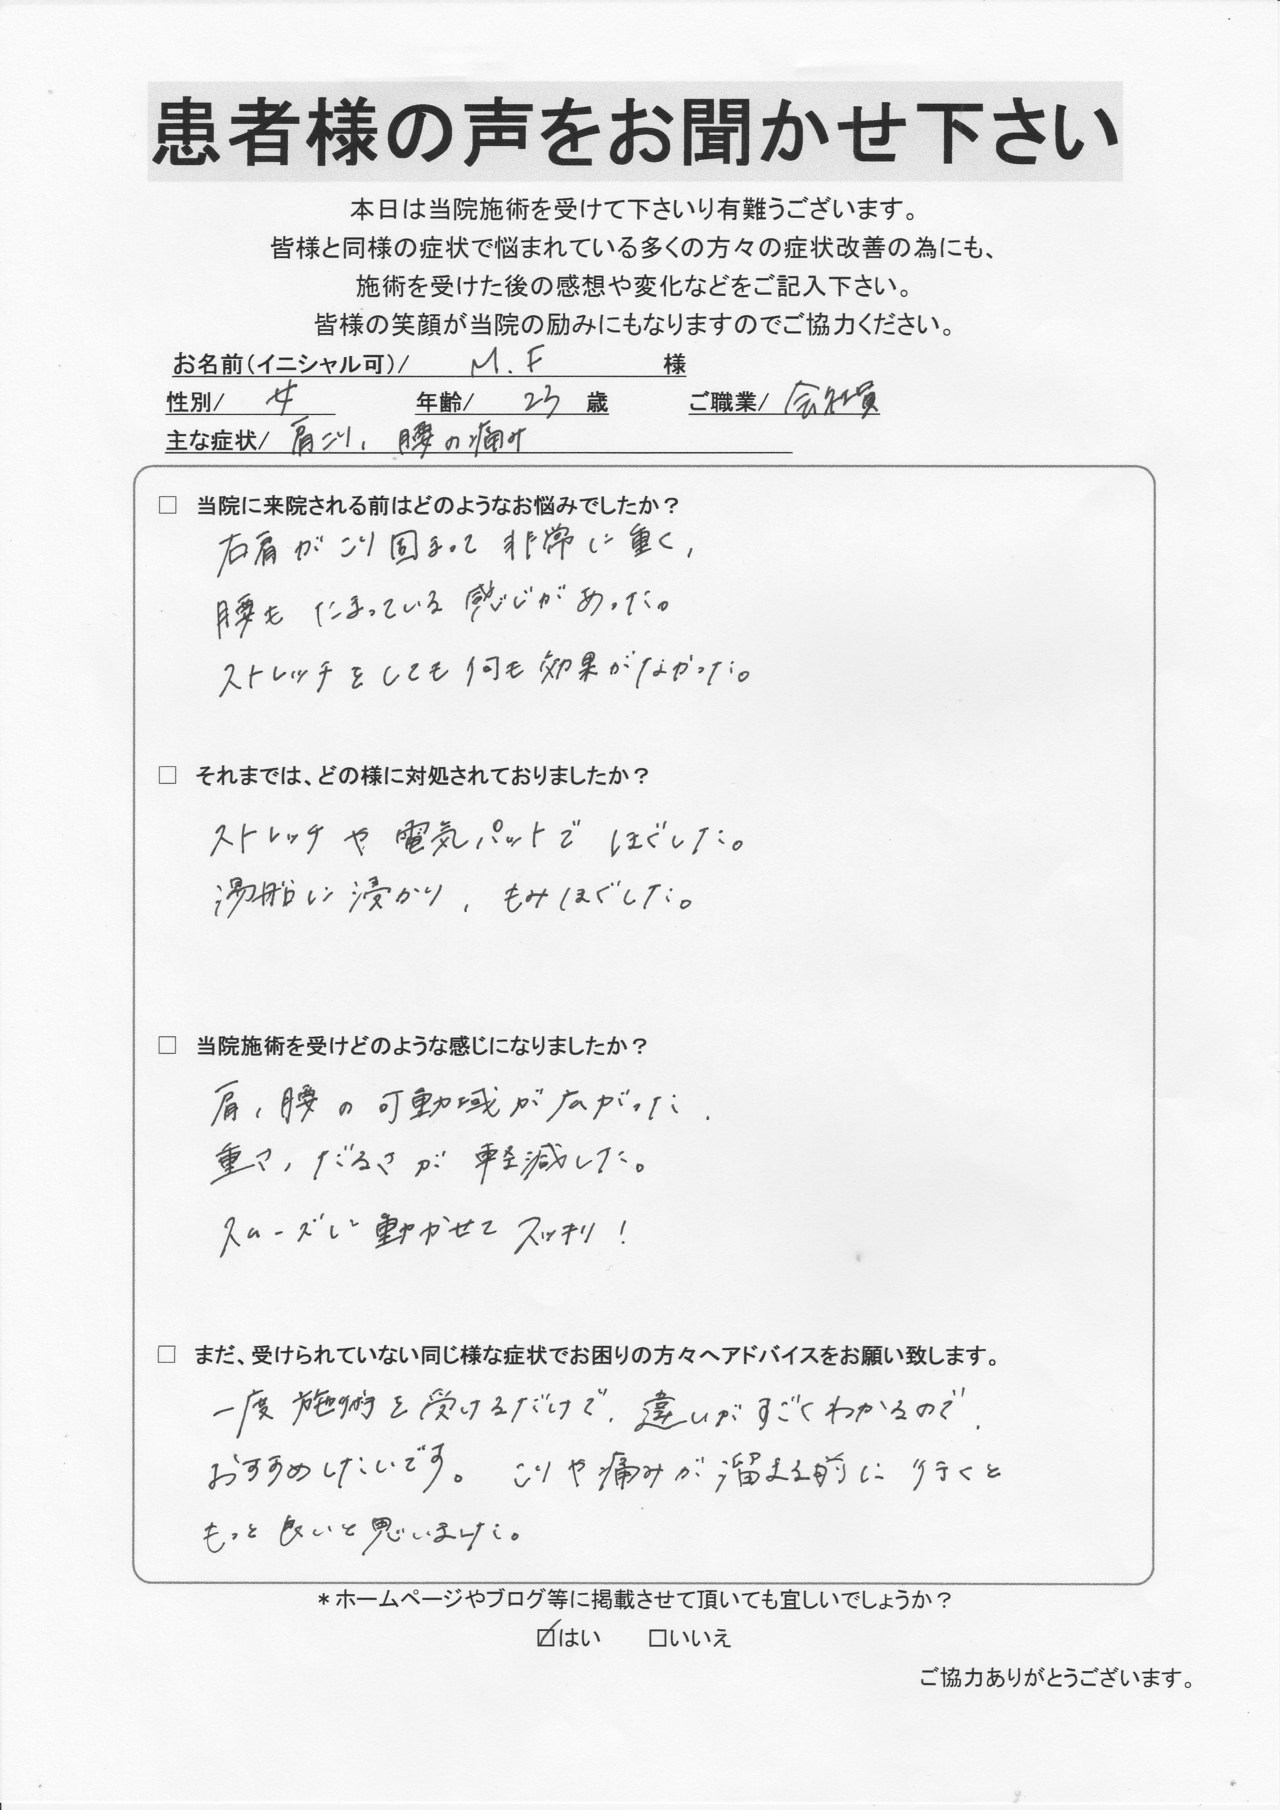 患者様の声をお聞かせ下さい
本日は当院施術を受けて下さいり有難うございます。
皆様と同様の症状で悩まれている多くの方々の症状改善の為にも、
施術を受けた後の感想や変化などをご記入下さい。
皆様の笑顔が当院の励みにもなりますのでご協力ください。
お名前(イニシャル可)/ M.F 様
性別/ 女 年齢/ 23 歳 ご職業/ 会社員
主な症状/ 肩こり、腰の痛み
□ 当院に来院される前はどのようなお悩みでしたか？
右肩がこり固まって非常に重く、
腰もたまっている感じがあった。
ストレッチをしても何も効果がなかった。
□ それまでは、どの様に対処されておりましたか？
ストレッチや電気パットでほぐした。
湯船に浸かり、もみほぐした。
□ 当院施術を受けどのような感じになりましたか？
肩、腰の可動域が広がった、
重さ、だるさが軽減した。
スムーズに動かせてスッキリ！
□ まだ、受けられていない同じ様な症状でお困りの方々へアドバイスをお願い致します。
一度施術を受けるだけで、違いがすごくわかるので、
おすすめしたいです。こりや痛みが溜まる前に行くと
もっと良いと思いました。
＊ホームページやブログ等に掲載させて頂いても宜しいでしょうか？
☑はい □いいえ
ご協力ありがとうございます。